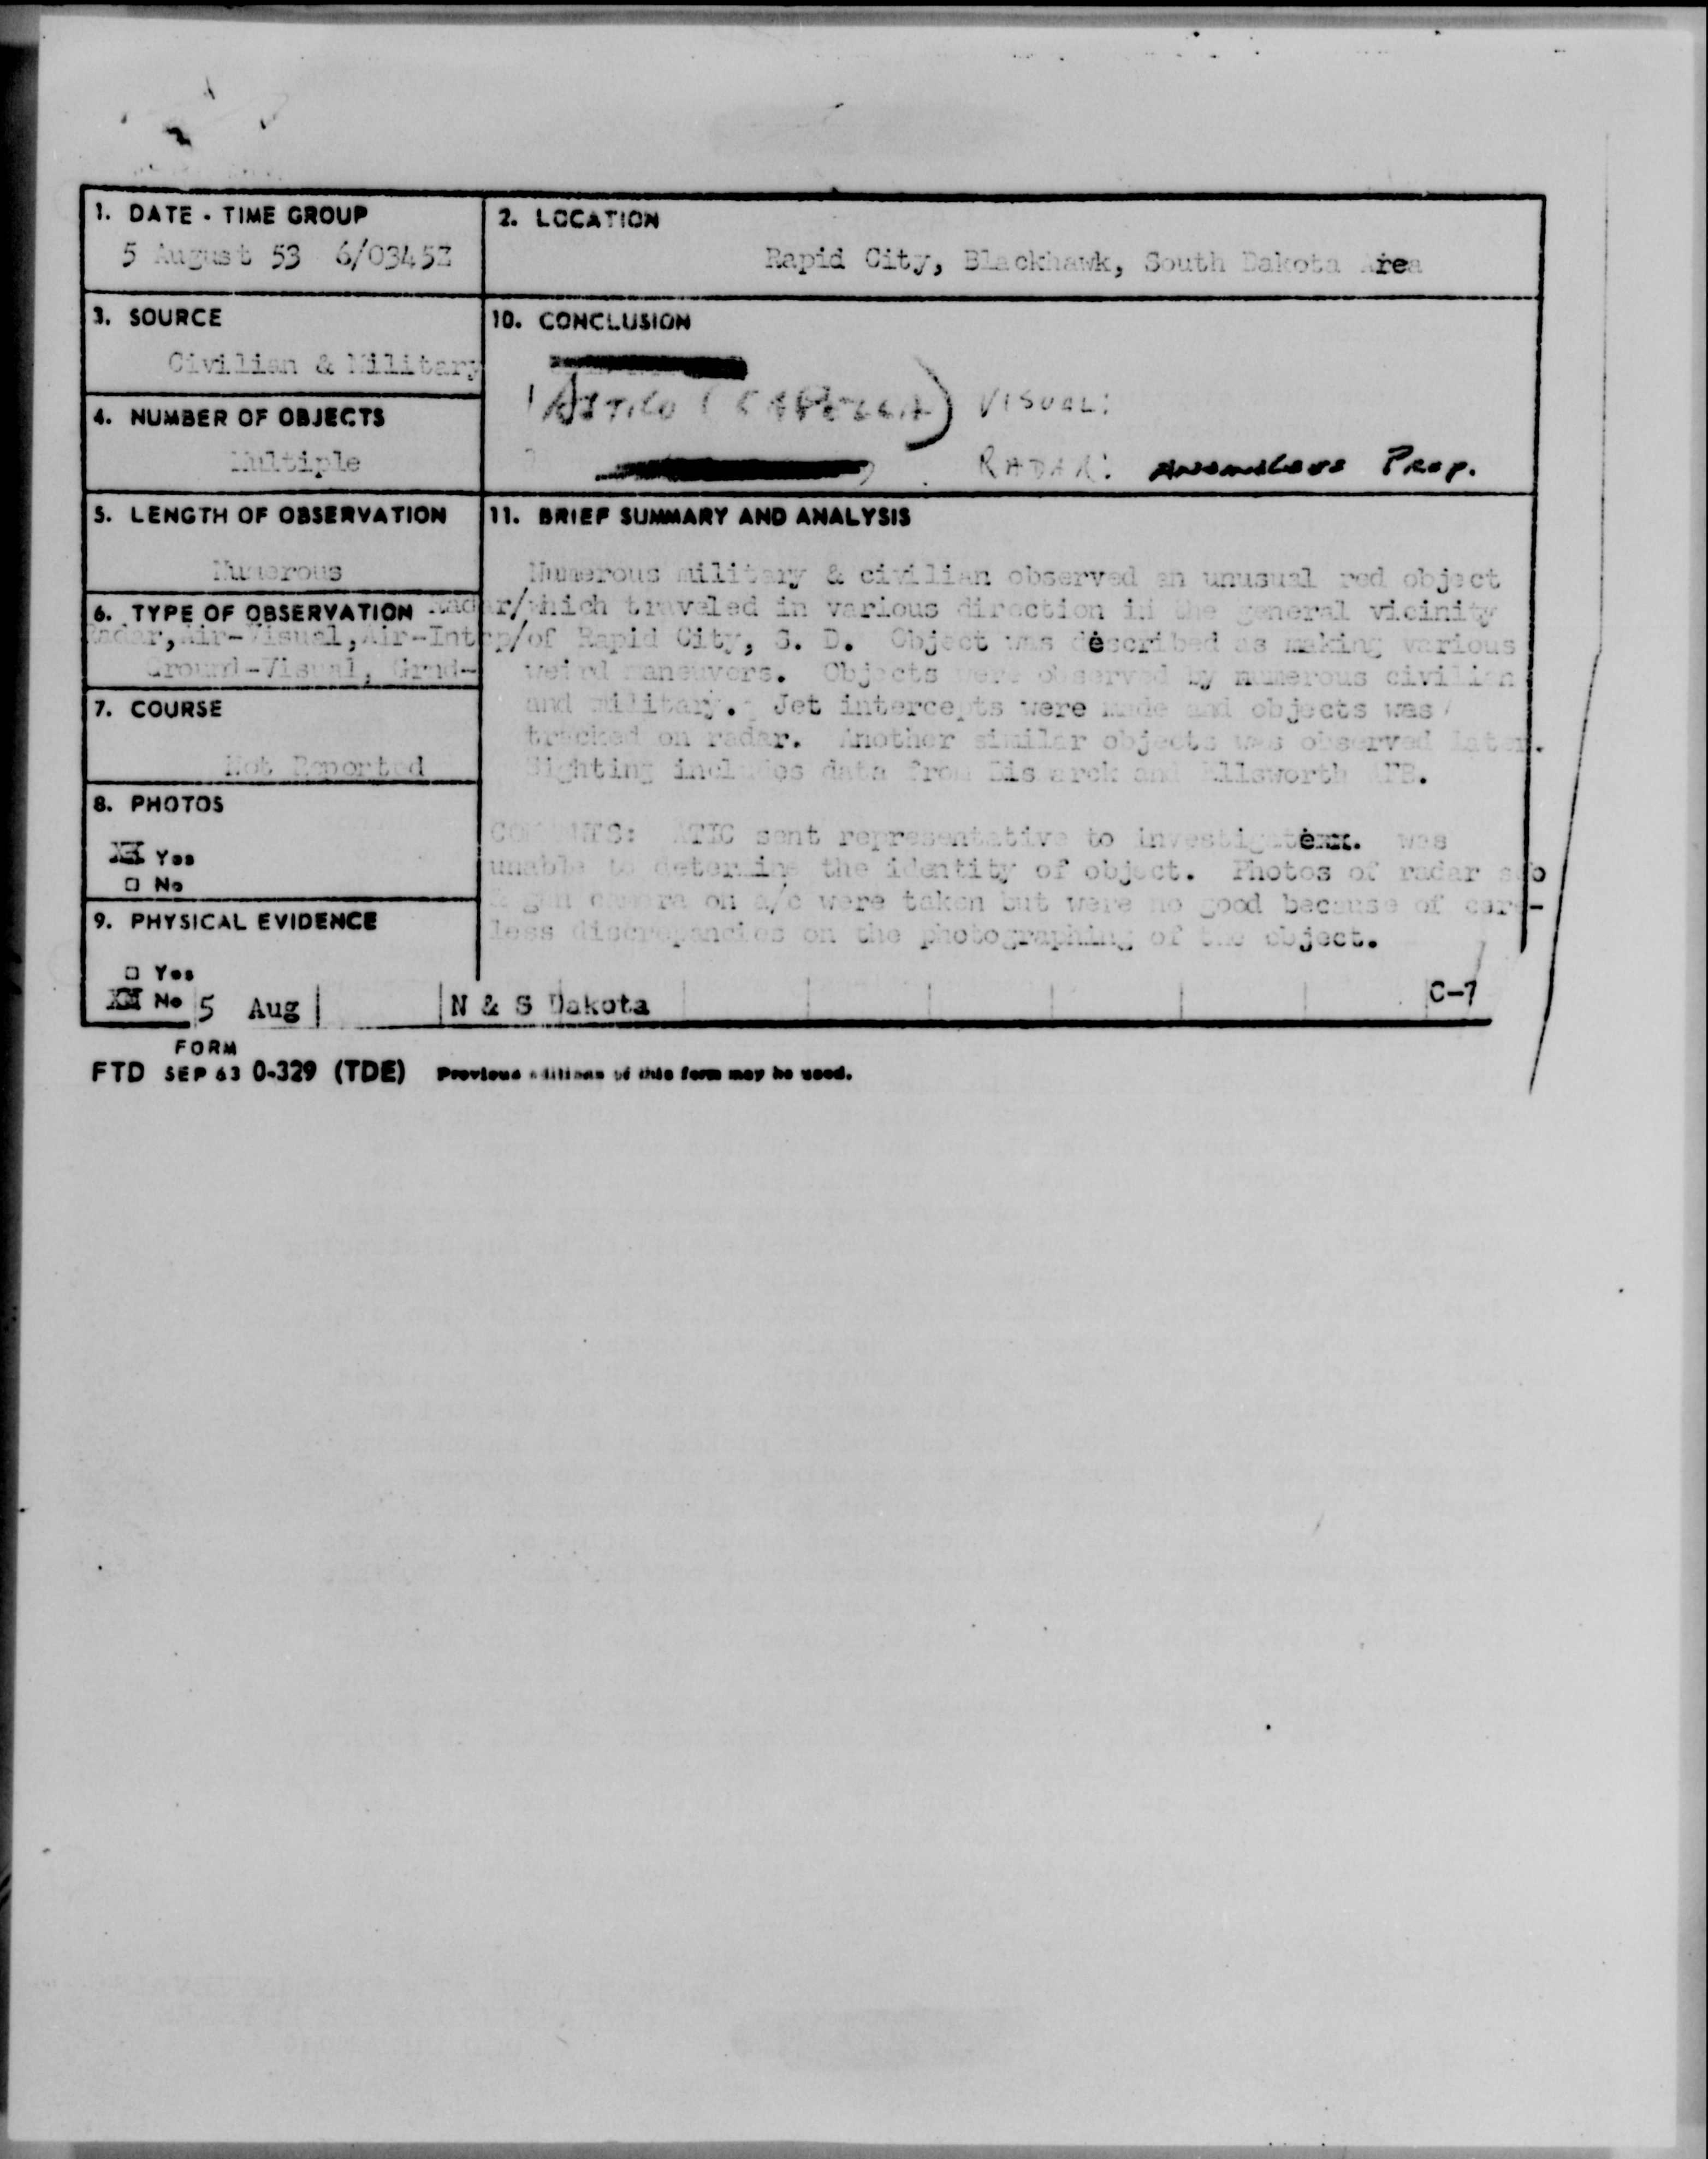 1. DATE - TIME GROUP
5 August 53 6/0345Z
2. LOCATION
Rapid City, Blackhawk, South Dakota Area
3. SOURCE
Civilian & Military
10. CONCLUSION
1 ASTRO (CAPELLA) VISUAL:
2
RADAR: ANOMALOUS PROP.
4. NUMBER OF OBJECTS
Multiple
5. LENGTH OF OBSERVATION
Numerous
6. TYPE OF OBSERVATION Radar/
Radar, Air-Visual, Air-Intrp/
Ground-Visual, Grnd-
7. COURSE
Not Reported
8. PHOTOS
XX Yes
□ No
9. PHYSICAL EVIDENCE
□ Yes
XX No
11. BRIEF SUMMARY AND ANALYSIS
Numerous military & civilian observed an unusual red object
which traveled in various direction in the general vicinity
of Rapid City, S. D. Object was described as making various
weird maneuvers. Objects were observed by numerous civilian
and military. Jet intercepts were made and objects was
tracked on radar. Another similar objects was observed later.
Sighting includes data from Bismarck and Ellsworth AFB.
COMMENTS: ATIC sent representative to investigate. was
unable to determine the identity of object. Photos of radar
& gun camera on a/c were taken but were no good because of care-
less discrepancies on the photographing of the object.
5 Aug N & S Dakota C-7
FORM
FTD SEP 63 0-329 (TDE) Previous editions of this form may be used.